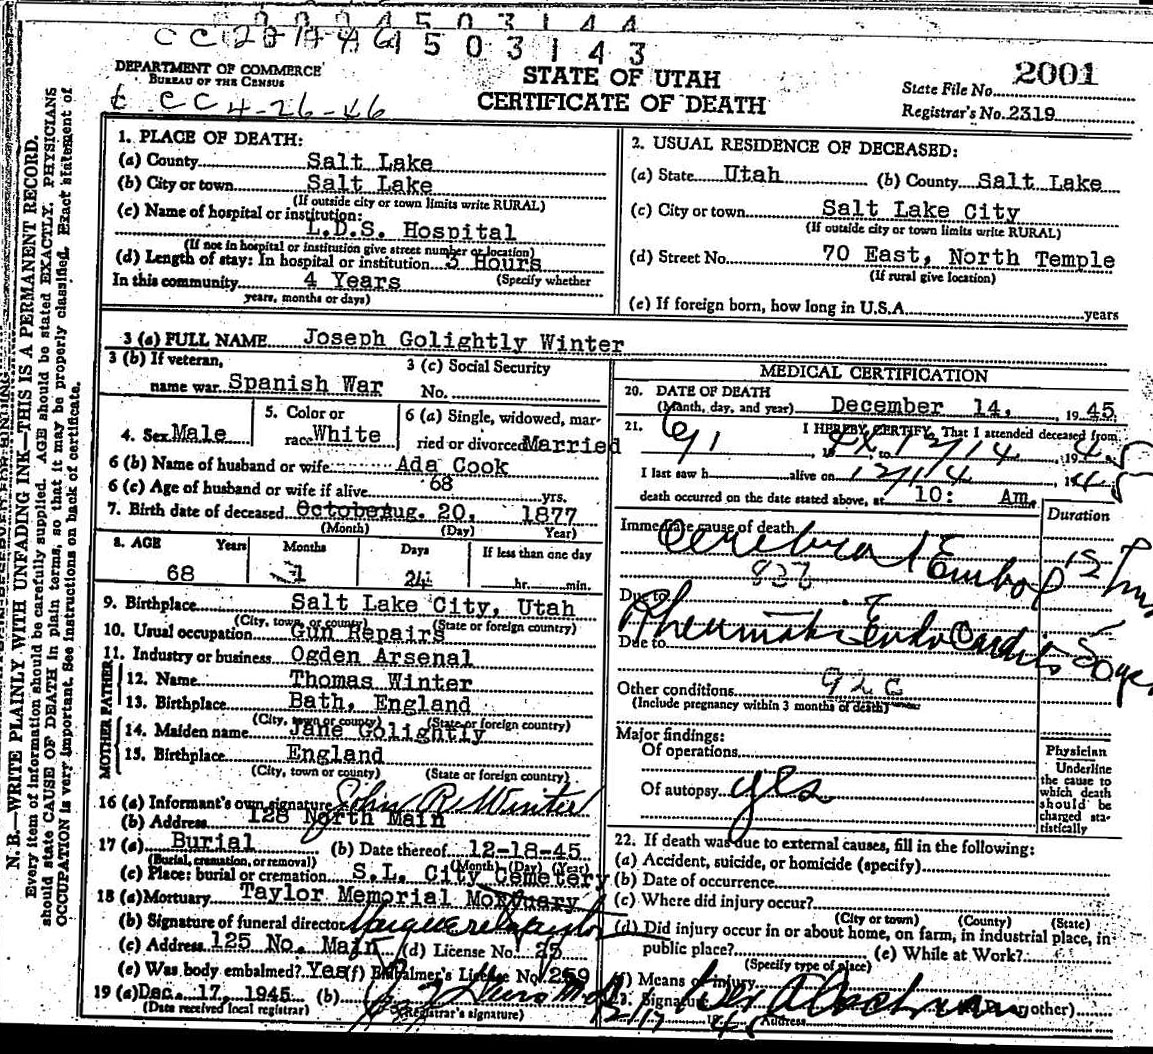 1503144
1503143
CC 4-26-46
DEPARTMENT OF COMMERCE
BUREAU OF THE CENSUS
STATE OF UTAH
CERTIFICATE OF DEATH
State File No. 2001
Registrar's No. 2319
N. B.—WRITE PLAINLY WITH UNFADING INK—THIS IS A PERMANENT RECORD.
Every item of information should be carefully supplied. AGE should be stated EXACTLY. PHYSICIANS
should state CAUSE OF DEATH in plain terms, so that it may be properly classified. Exact statement of
OCCUPATION is very important. See instructions on back of certificate.
1. PLACE OF DEATH:
(a) County Salt Lake
(b) City or town Salt Lake
(If outside city or town limits write RURAL)
(c) Name of hospital or institution:
L.D.S. Hospital
(If not in hospital or institution give street number or location)
(d) Length of stay: In hospital or institution 3 Hours
(Specify whether
In this community 4 Years
years, months or days)
2. USUAL RESIDENCE OF DECEASED:
(a) State Utah (b) County Salt Lake
(c) City or town Salt Lake City
(If outside city or town limits write RURAL)
(d) Street No. 70 East, North Temple
(If rural give location)
(e) If foreign born, how long in U.S.A. years
3 (a) FULL NAME Joseph Golightly Winter
3 (b) If veteran,
name war Spanish War
3 (c) Social Security
No.
4. Sex Male
5. Color or
race White
6 (a) Single, widowed, mar-
ried or divorced Married
6 (b) Name of husband or wife Ada Cook
6 (c) Age of husband or wife if alive 68 yrs.
7. Birth date of deceased Aug. 20, 1877
(Month) (Day) Year)
8. AGE Years Months Days If less than one day
68 24 hr. min.
9. Birthplace Salt Lake City, Utah
(City, town, or county) (State or foreign country)
10. Usual occupation Gun Repairs
11. Industry or business Ogden Arsenal
FATHER
12. Name Thomas Winter
13. Birthplace Bath, England
(City, town or county) (State or foreign country)
MOTHER
14. Maiden name Jane Golightly
15. Birthplace England
(City, town or county) (State or foreign country)
16 (a) Informant's own signature John R Winter
(b) Address 128 North Main
17 (a) Burial (b) Date thereof 12-18-45
(Burial, cremation, or removal) (Month) (Day) (Year)
(c) Place: burial or cremation S.L. City Cemetery
18 (a) Mortuary Taylor Memorial Mortuary
(b) Signature of funeral director
(c) Address 125 No. Main (d) License No. 25
(e) Was body embalmed? Yes (f) Embalmer's License No. 259
19 (a) Dec. 17, 1945 (b)
(Date received local registrar) (Registrar's signature)
MEDICAL CERTIFICATION
20. DATE OF DEATH
(Month, day, and year) December 14, 1945
21. I HEREBY CERTIFY, That I attended deceased from
to 12/14 1945
I last saw h alive on 12/14 1945
death occurred on the date stated above, at 10: Am.
Duration
Immediate cause of death
Cerebral Embol 12 hrs
Due to
Rheumatic Endocarditis 50 yrs
Due to
Other conditions
(Include pregnancy within 3 months of death)
Major findings:
Of operations
Of autopsy yes
Physician
Underline
the cause to
which death
should be
charged sta-
tistically
22. If death was due to external causes, fill in the following:
(a) Accident, suicide, or homicide (specify)
(b) Date of occurrence
(c) Where did injury occur?
(City or town) (County) (State)
(d) Did injury occur in or about home, on farm, in industrial place, in
public place? (e) While at Work?
(Specify type of place)
(f) Means of injury
23. Signature (Dr. or other)
12/17 45 Address